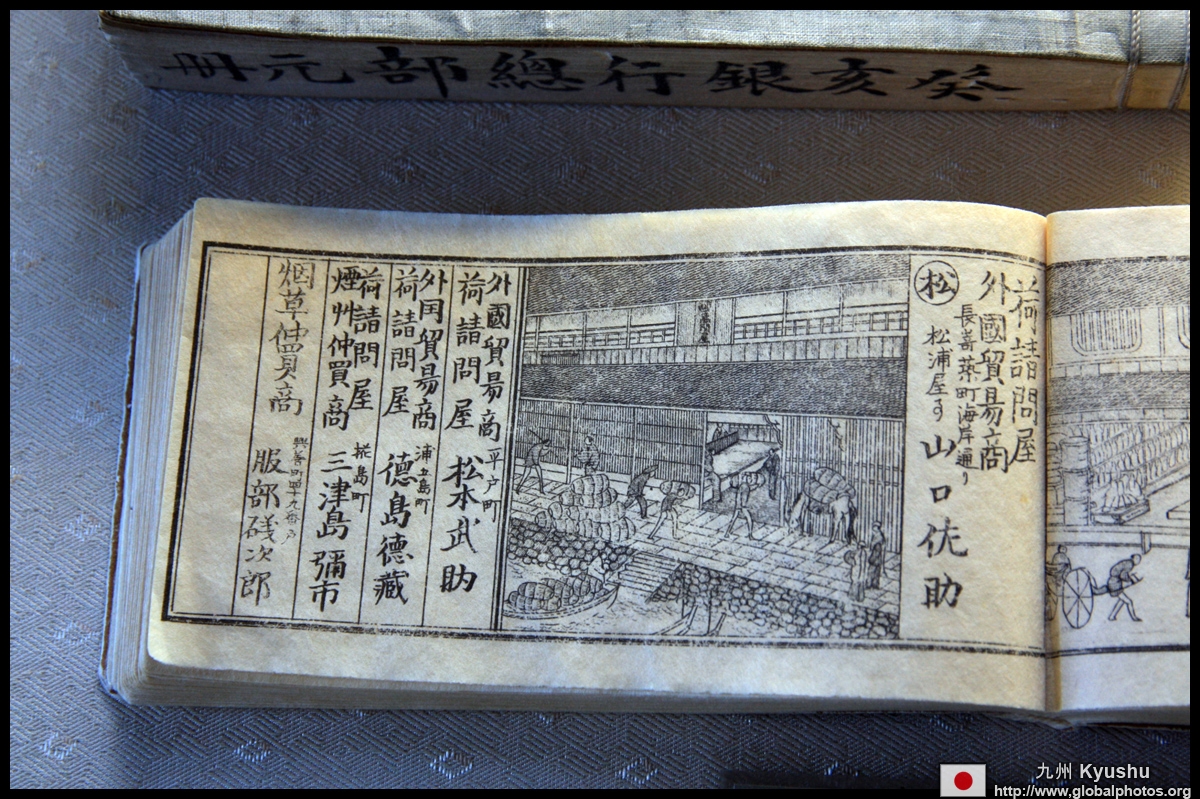 癸亥銀行總部元冊
荷請問屋
外國貿易商
長嵜築町海岸通り
松浦屋ヿ
松
山口佐助
外國貿易商
荷請問屋
平戸町
松本武助
外国貿易商
荷請問屋
浦五島町
德島德藏
荷請問屋
煙艸仲買商
椛島町
三津島彌市
烟草仲買商
興善町四十九番戸
服部磯次郎
九州 Kyushu
http://www.globalphotos.org